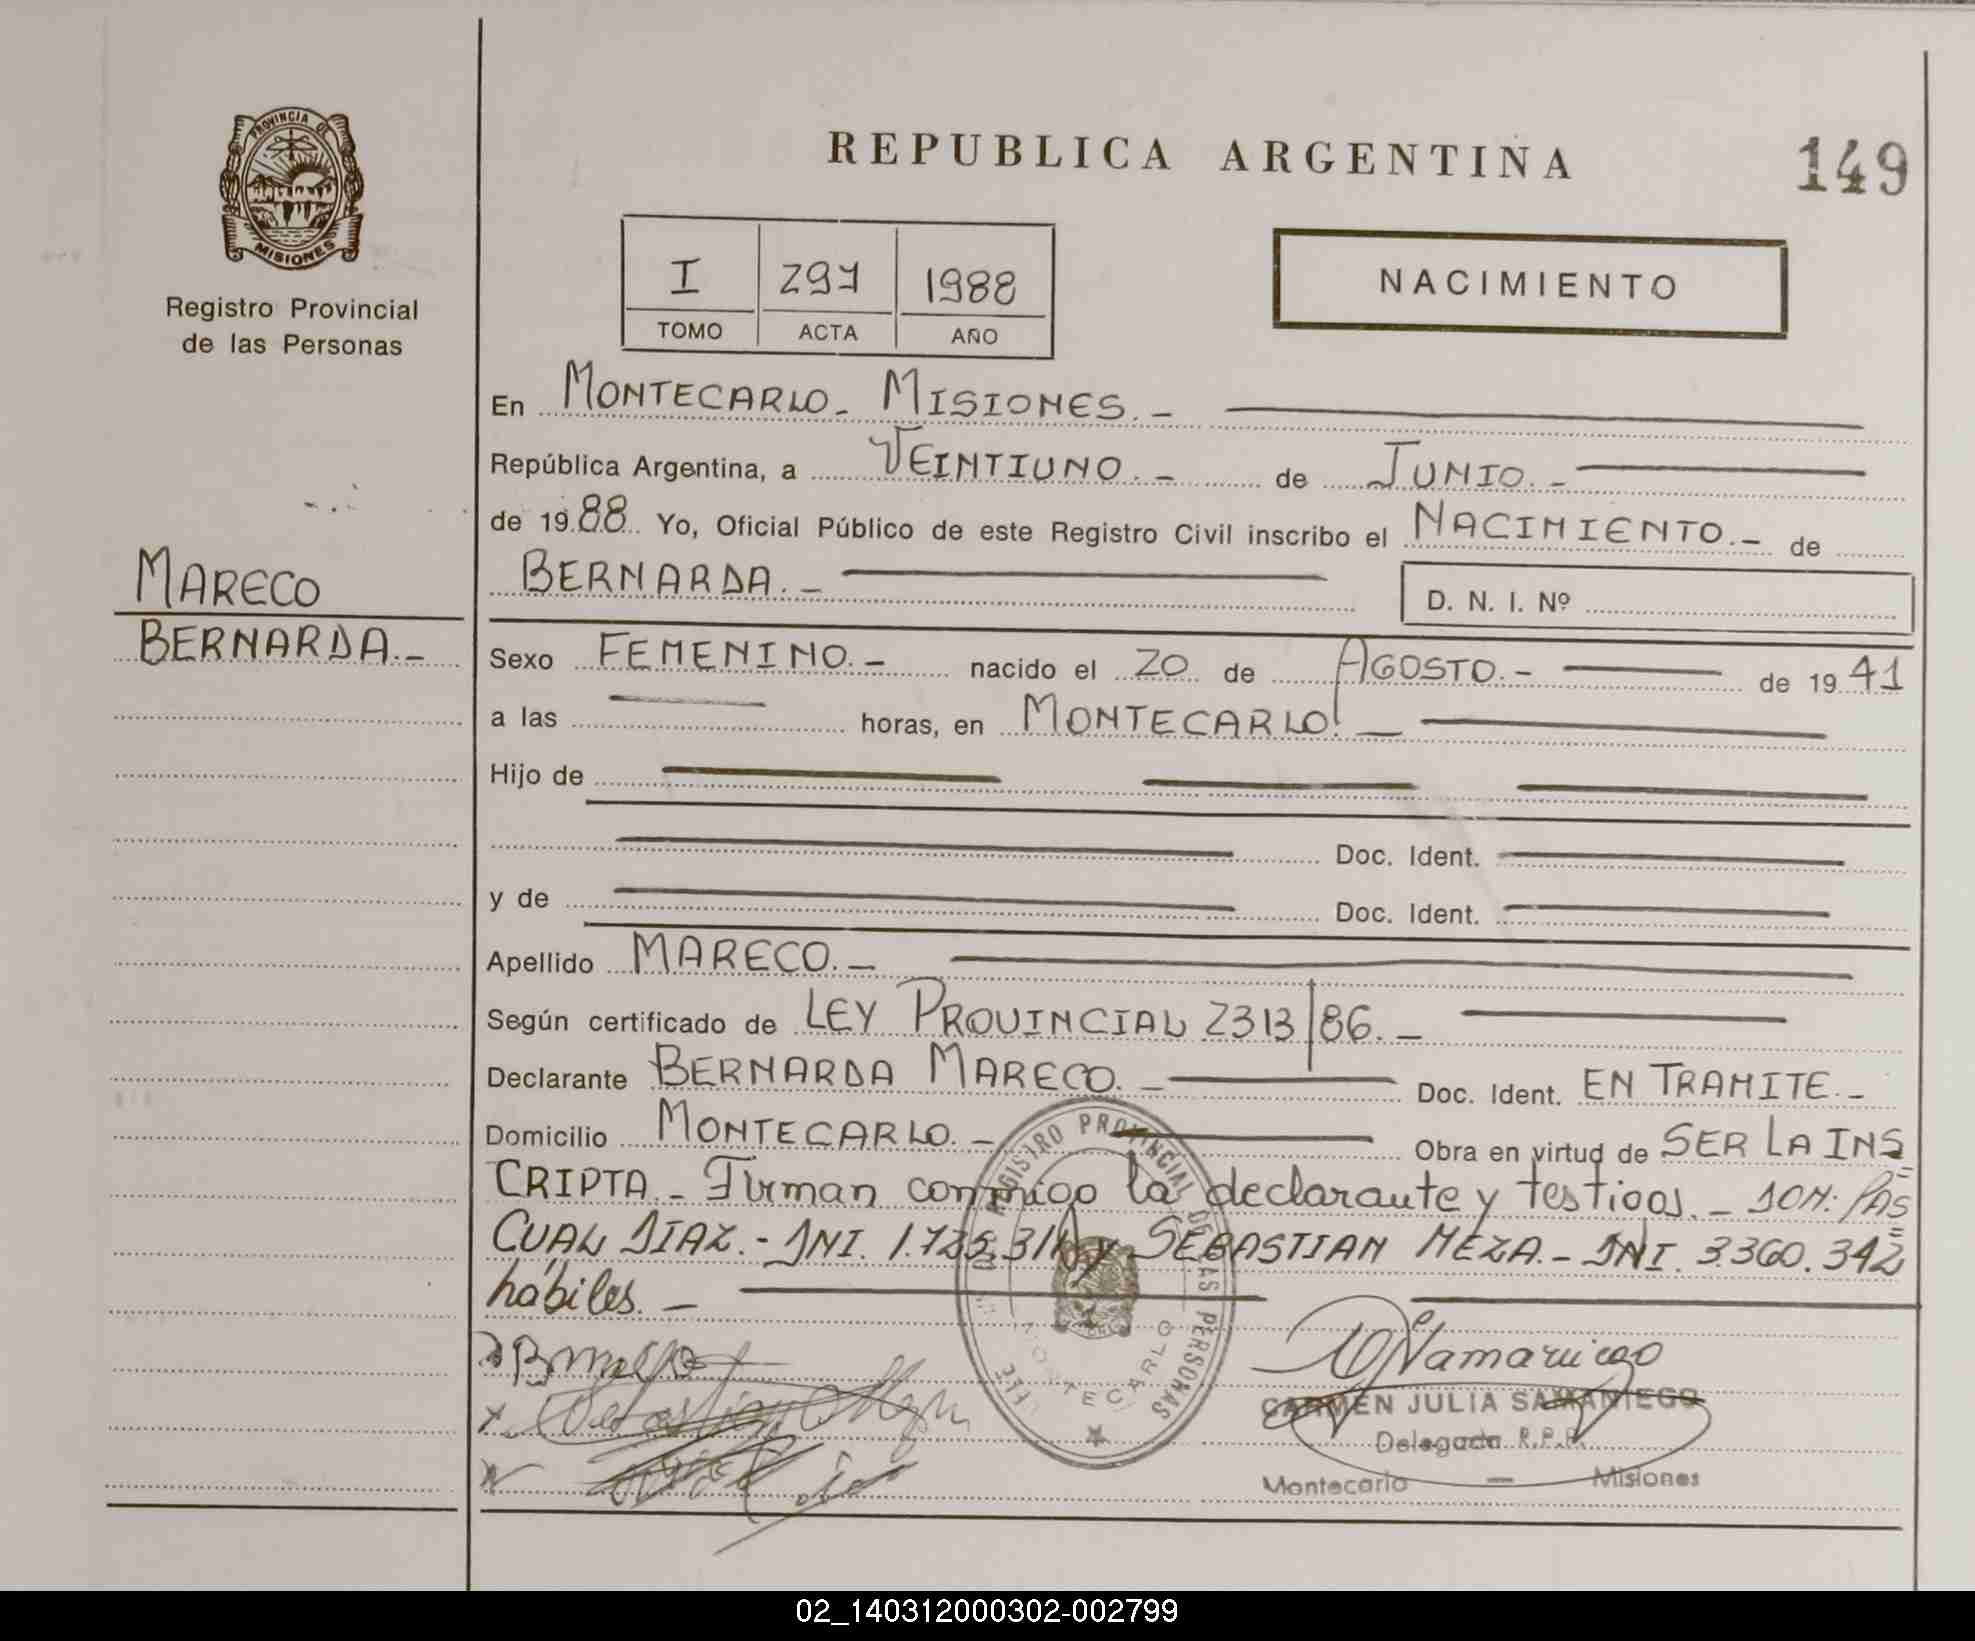 PROVINCIA DE
MISIONES
Registro Provincial
de las Personas
REPUBLICA ARGENTINA
149
I 297 1988
TOMO ACTA AÑO
NACIMIENTO
En MONTECARLO - MISIONES. -
República Argentina, a VEINTIUNO. - de JUNIO. -
de 1988 Yo, Oficial Público de este Registro Civil inscribo el NACIMIENTO. - de
BERNARDA. - D. N. I. Nº
MARECO
BERNARDA. -
Sexo FEMENINO. - nacido el 20 de AGOSTO. - de 1941
a las horas, en MONTECARLO. -
Hijo de
Doc. Ident.
y de Doc. Ident.
Apellido MARECO. -
Según certificado de LEY PROVINCIAL 2313/86. -
Declarante BERNARDA MARECO. - Doc. Ident. EN TRAMITE. -
Domicilio MONTECARLO. - Obra en virtud de SER LA INS
CRIPTA. - Firman conmigo la declarante y testigos. - SON: PAS
CUAL DIAZ. - DNI. y SEBASTIAN MEZA. - DNI. 3.360.342
hábiles. -
REGISTRO PROVINCIAL DE LAS PERSONAS
MONTECARLO
CARMEN JULIA SAMANIEGO
Delegada R.P.P.
Montecarlo — Misiones
02_140312000302-002799